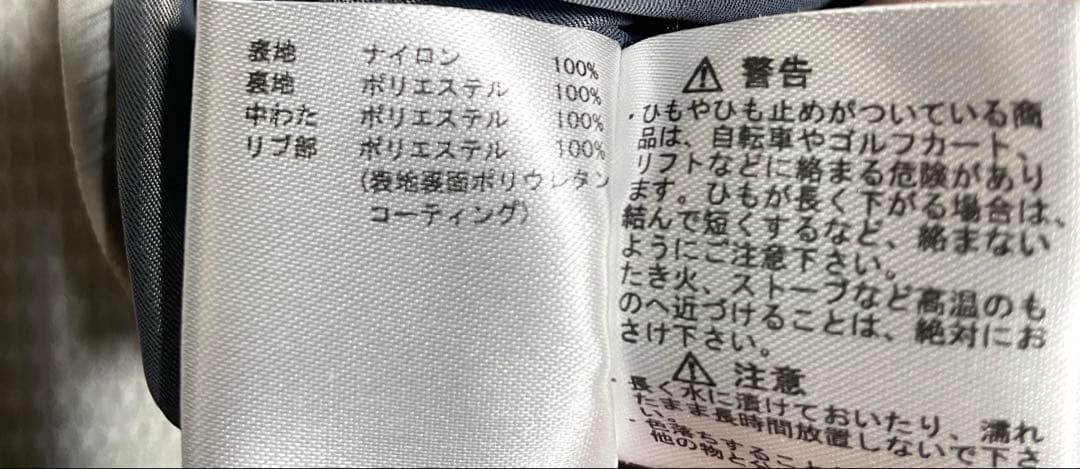 表地 ナイロン 100%
裏地 ポリエステル 100%
中わた ポリエステル 100%
リブ部 ポリエステル 100%
(表地裏面ポリウレタン
コーティング)
⚠ 警告
・ひもやひも止めがついている商
品は、自転車やゴルフカート、
リフトなどに絡まる危険があり
ます。ひもが長く下がる場合は、
結んで短くするなど、絡まない
ようにご注意下さい。
たき火、ストーブなど高温のも
のへ近づけることは、絶対にお
さけ下さい。
⚠ 注意
・長く水に漬けておいたり、濡れ
たまま長時間放置しないで下さ
い。
・色落ちすること
他の物と